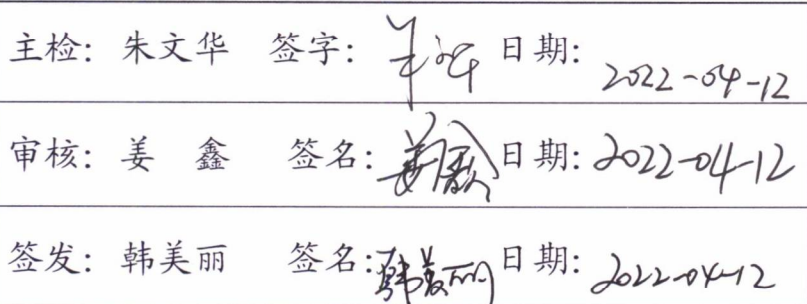 主检: 朱文华 签字: 日期: 2022-04-12
审核: 姜 鑫 签名: 姜鑫 日期: 2022-04-12
签发: 韩美丽 签名: 韩美丽 日期: 2022-04-12